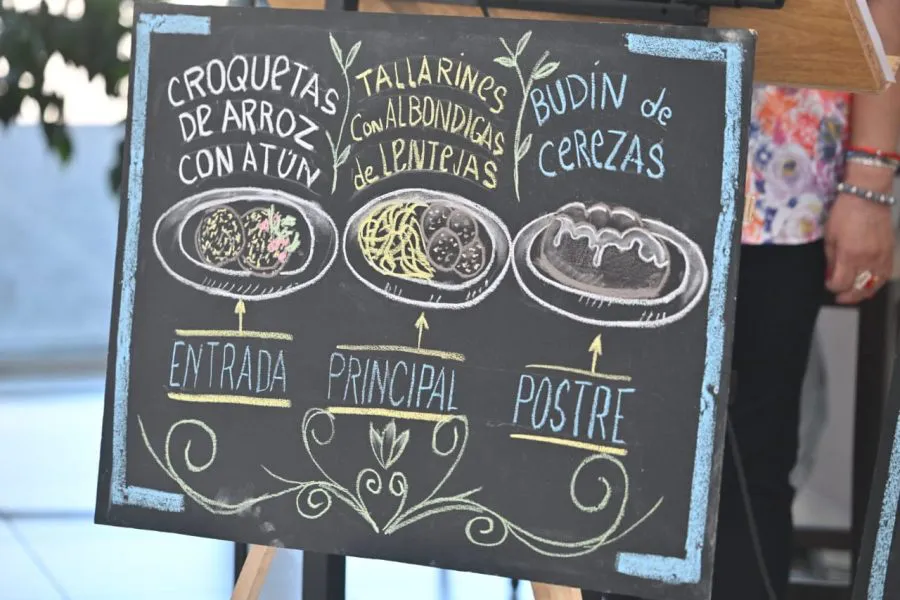 CROQUETAS
DE ARROZ
CON ATÚN
TALLARINES
Con ALBONDIGAS
de LENTEJAS
BUDÍN de
CEREZAS
ENTRADA
PRINCIPAL
POSTRE